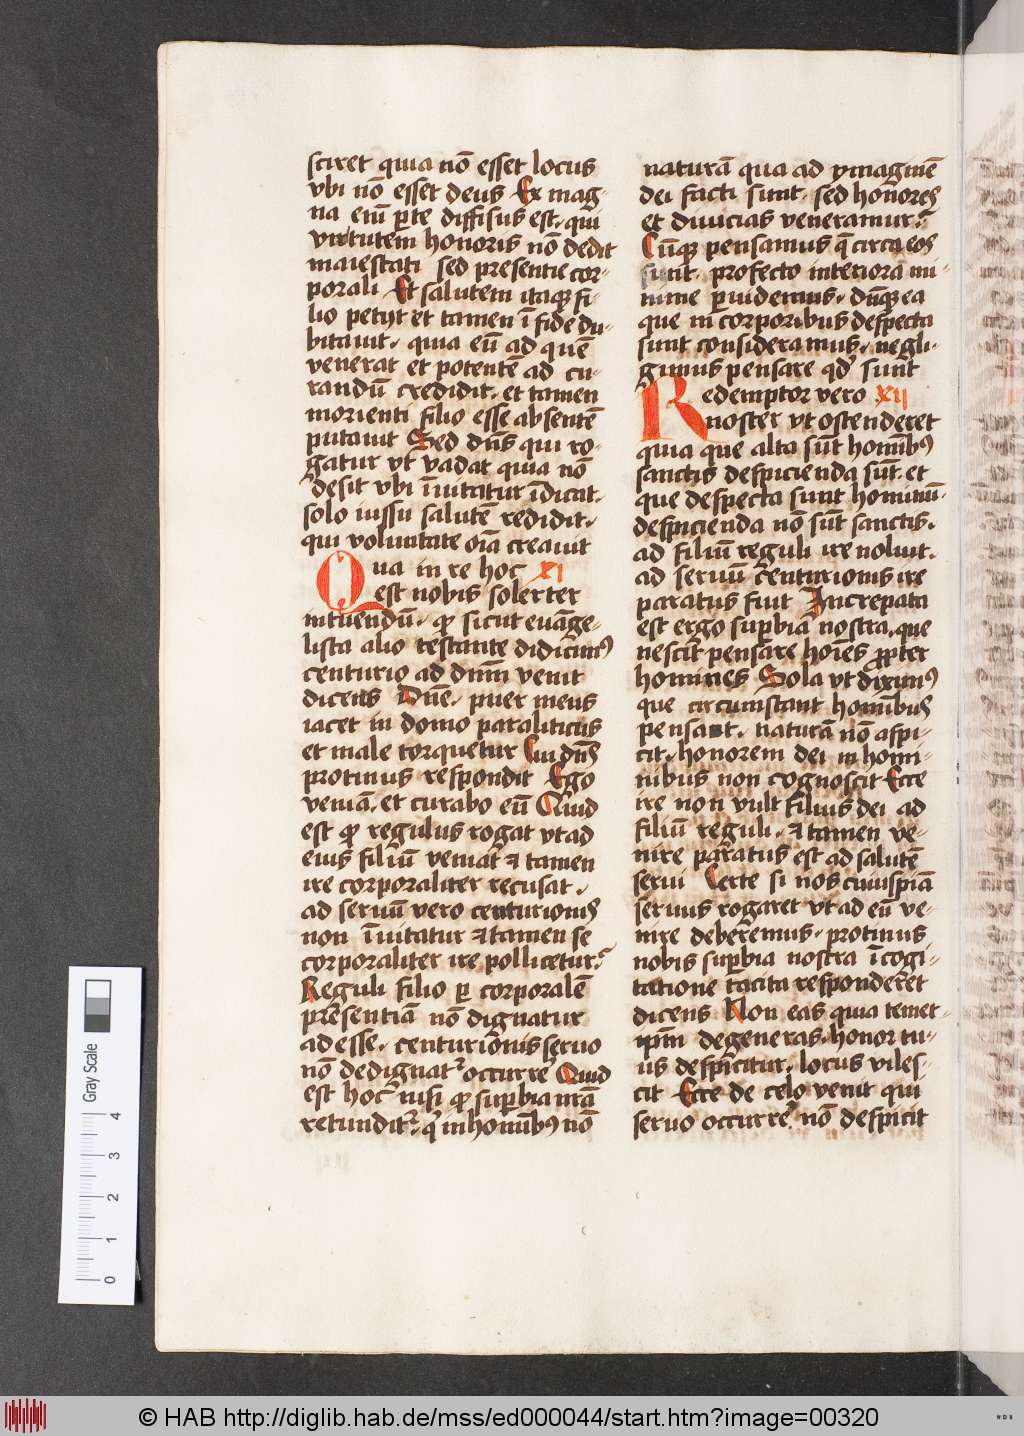 sciret quia nō esset locus
vbi nō esset deus Ex mag-
na em̄ ꝑte diffisus est. qui
virtutem honoris nō dedit
maiestati sed presentie cor-
porali Et salutem itaqꝫ fi-
lio petijt et tamen ī fide du-
bitauit. quia eū ad quē
venerat et potentē ad cu-
randū credidit. et tamen
morienti filio esse absentē
putauit Sed dn̄s qui ro-
gatur vt vadat quia nō
desit vbi īuitatur īdicat.
solo iussu salutē reddidit.
qui voluntate oīa creauit
Qua in re hoc XI
est nobis solerter
intuendū. ꝙ sicut euāge-
lista alio testante didicimꝰ
centurio ad dn̄m venit
dicens Dn̄e. puer meus
iacet in domo paraliticus
et male torquetur Cui dn̄s
protinus respondit Ego
veniā. et curabo eū Quid
est ꝙ regulus rogat vt ad
eius filiū veniat ⁊ tamen
ire corporaliter recusat.
ad seruū vero centurionis
non īuitatur ⁊ tamen se
corporaliter ire pollicetur.
Reguli filio ꝑ corporalē
presentiā nō dignatur
adesse. centurionis seruo
nō dedignatᷣ occurrere Quid
est hoc nisi ꝙ supbia nr̄a
retunditᷣ. qͥ in homībꝰ nō
naturā qua ad ymaginē
dei facti sunt. sed honores
et diuicias veneramur.
Cūqꝫ pensamus q̄ circa eos
sunt. profecto interiora mi-
nime ꝑuidemus. dūqꝫ ea
que in corporibus despecta
sunt consideramus. negli-
gimus pensare qd̕ sunt
Redemptor vero XII
noster vt ostenderet
quia que alta sūt homībꝰ
sanctis despicienda sūt. et
que despecta sunt hominū.
despicienda nō sūt sanctis.
ad filiū reguli ire noluit.
ad seruū centurionis ire
paratus fuit Increpata
est ergo supbia nostra. que
nescit pensare hoīes ꝓpter
homines Sola vt diximꝰ
que circumstant homībus
pensat. naturā non aspi-
cit. honorem dei in homi-
nibus non cognoscit Ecce
ire non vult filius dei ad
filiū reguli. ⁊ tamen ve-
nire paratus est ad salutē
serui Certe si nos cuiuspiā
seruus rogaret vt ad eū ve-
nire deberemus. protinus
nobis supbia nostra ī cogi-
tatione tacita responderet
dicens Non eas quia temet-
ipm̄ degeneras. honor tu-
us despicitur. locus viles-
cit Ecce de celo venit qui
seruo occurrere nō despicit
Gray Scale
0 1 2 3 4
© HAB http://diglib.hab.de/mss/ed000044/start.htm?image=00320